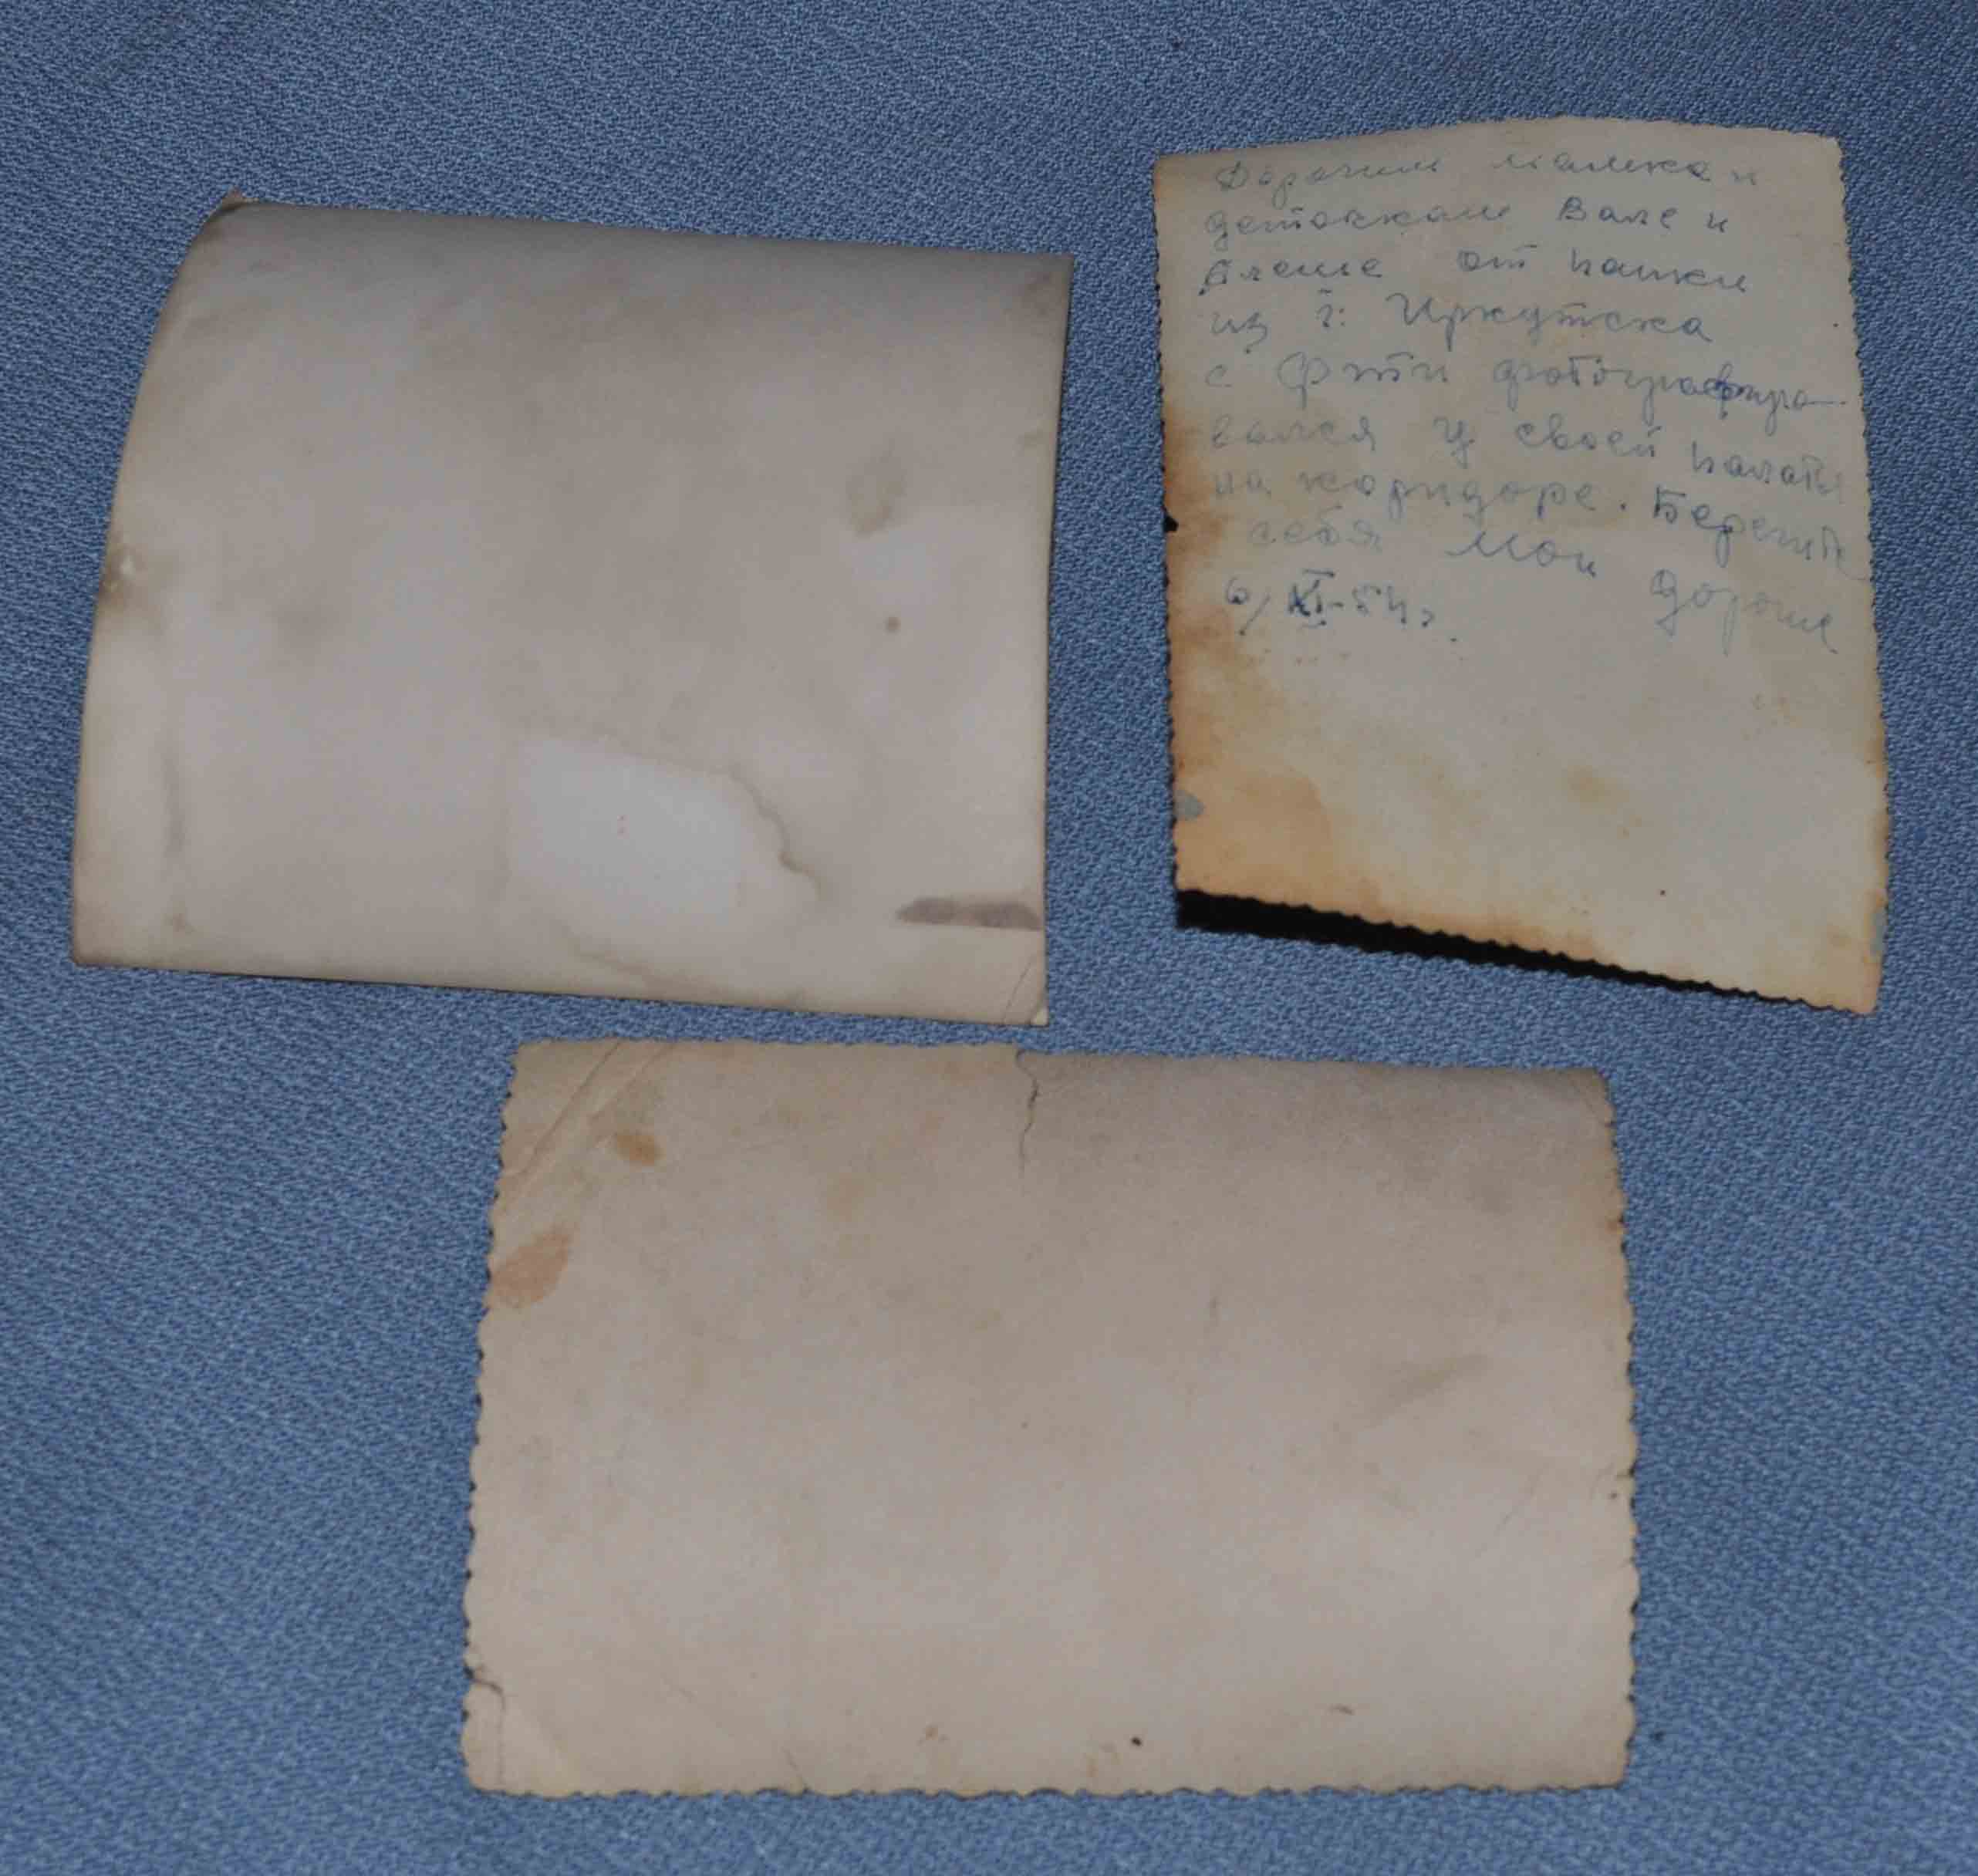 Дорогим мамке и
деткам Вале и
от папки
из г. Иркутска
с фотографиро-
вался у своей палаты
на коридоре. Берегите
себя мои дорогие
6/XI-54г.